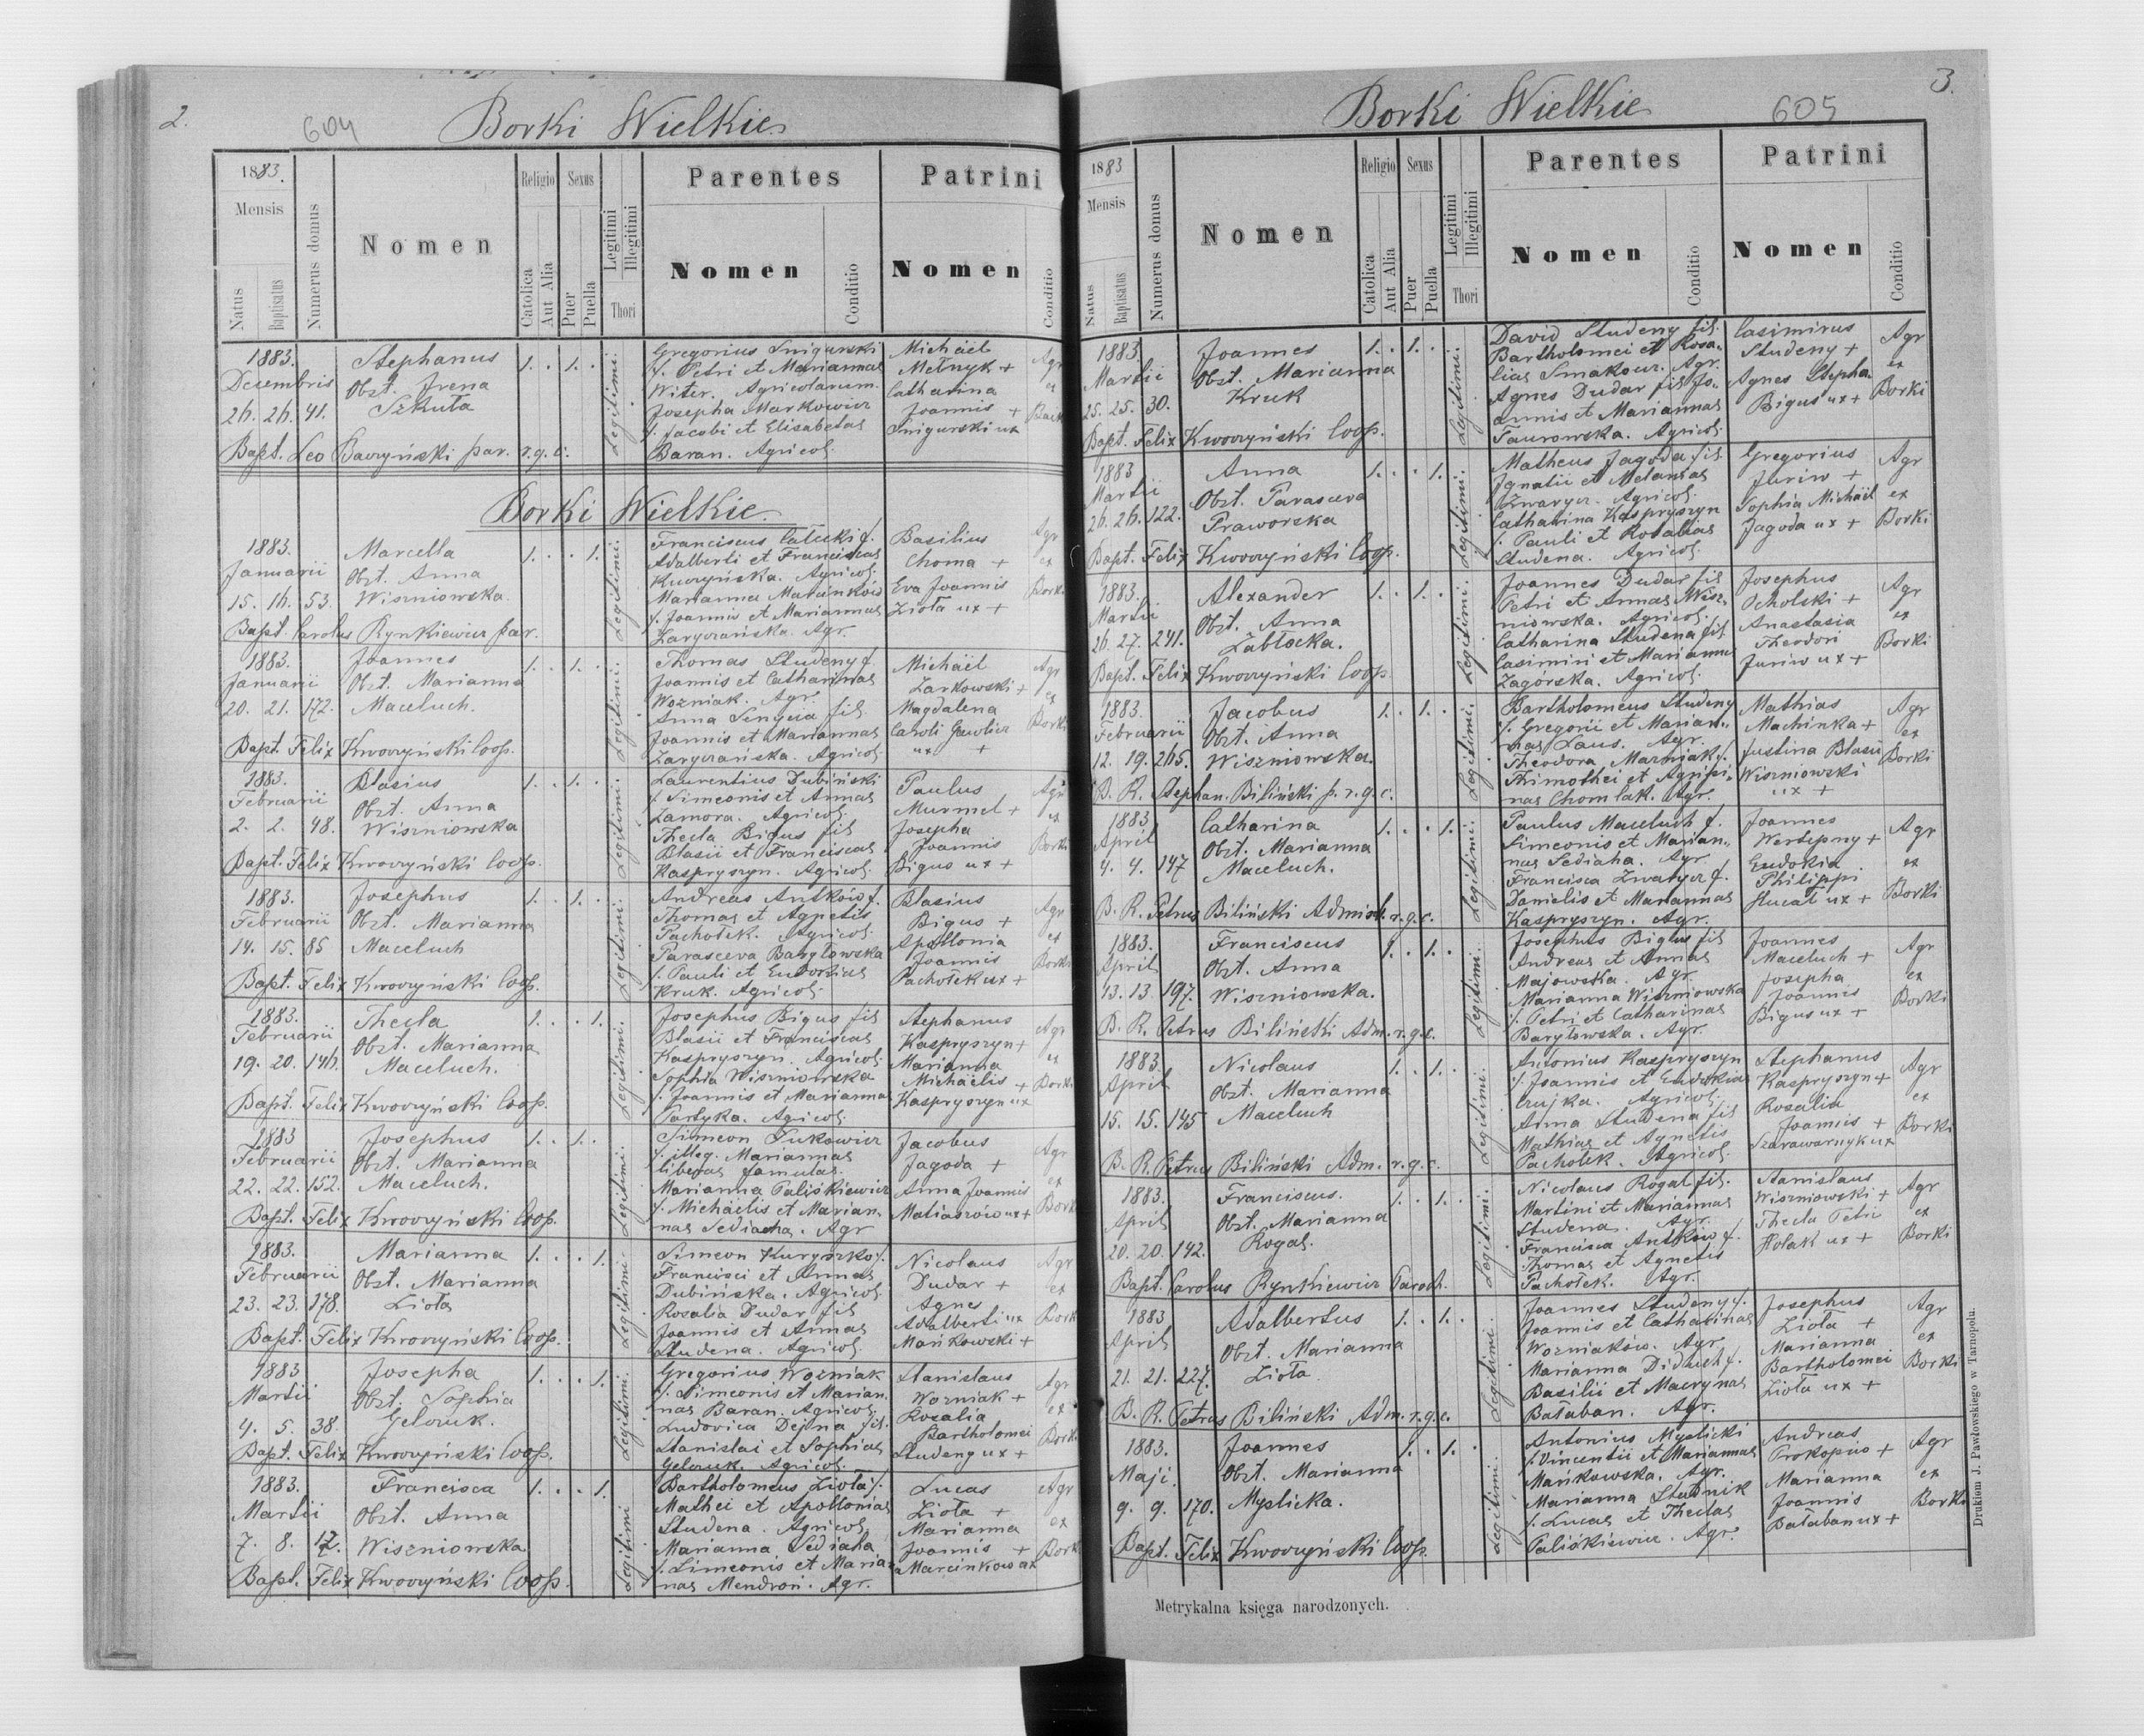 2.
604
Borki Wielkie
1883.
Mensis
Natus
Baptisatus
Numerus domus
Nomen
Religio
Catolica
Aut Alia
Sexus
Puer
Puella
Legitimi
Illegitimi
Thori
Parentes
Nomen
Conditio
Patrini
Nomen
Conditio
1883.
Decembris
26. 26. 41.
Stephanus
Obst. Irena
Szkuta
1. . 1. .
Legitimi.
Gregorius Snigurski
f. Petri et Mariannae
Witer. Agricolarum.
Josepha Markowicz
f. Jacobi et Elisabetae
Baran. Agricol.
Michael
Melnyk +
Catharina
Joannis +
Snigurski ux
Agr
ex
Bapt. Leo par. r. g. c.
Borki Wielkie.
1883.
Januarii
15. 16. 53.
Marcella
Obst. Anna
Wiszniowska.
1. . . 1.
Legitimi.
Franciscus Całucki f.
Adalberti et Franciscae
Kuczyńska. Agricol.
Marianna Marcinków
f. Joannis et Mariannae
Zaryczańska. Agr.
Basilius
Choma +
Eva Joannis
Zioła ux +
Agr
ex
Borki
Bapt. Carolus Rynkiewicz par.
1883.
Januarii
20. 21. 172.
Joannes
Obst. Marianna
Maceluch.
1. . 1. .
Legitimi.
Thomas Studeny f.
Joannis et Catharinae
Wozniak. Agr.
Anna Senycia fil.
Joannis et Mariannae
Zaryczańska. Agricol.
Michael
Zarkowski +
Magdalena
Caroli Gawlicz
ux +
Agr
ex
Borki
Bapt. Felix Kwoczyński Coop.
1883.
Februarii
2. 2. 48.
Blasius
Obst. Anna
Wiszniowska
1. . 1. .
Legitimi.
Laurentius Dubiński
f. Simeonis et Annae
Zamora. Agricol.
Thecla Bigus fil
Blasii et Franciscae
Kaspryszyn. Agricol.
Paulus
Murmel +
Josepha
Joannis
Bigus ux +
Agr
ex
Borki
Bapt. Felix Kwoczyński Coop.
1883.
Februarii
14. 15. 85
Josephus
Obst. Marianna
Maceluch
1. . 1. .
Legitimi.
Andreas Antków f.
Thomae et Agnetis
Pachołek. Agricol.
Parasceva Baryłowska
f. Pauli et Eudoxiae
Kruk. Agricol.
Blasius
Bigus +
Apollonia
Joannis
Pachołek ux +
Agr
ex
Borki
Bapt. Felix Kwoczyński Coop.
1883.
Februarii
19. 20. 146.
Thecla
Obst. Marianna
Maceluch.
1. . . 1.
Legitimi.
Josephus Bigus fil
Blasii et Franciscae
Kaspryszyn. Agricol.
Sophia Wiszniowska
f. Joannis et Mariannae
Partyka. Agricol.
Stephanus
Kaspryszyn +
Marianna
Michaelis +
Kaspryszyn ux
Agr
ex
Borki
Bapt. Felix Kwoczyński Coop.
1883
Februarii
22. 22. 152.
Josephus
Obst. Marianna
Maceluch.
1. . 1. .
Legitimi.
Simeon Łukowicz
f. illeg. Mariannae
liberae famulae.
Marianna Paliśkiewicz
f. Michaelis et Marian-
nae Sediacha. Agr
Jacobus
Jagoda +
Anna Joannis
Matiaszów ux +
Agr
ex
Borki
Bapt. Felix Kwoczyński Coop.
1883.
Februarii
23. 23. 178.
Marianna
Obst. Marianna
Zioła
1. . . 1.
Legitimi.
Simeon Kuryszko f.
Francisci et Annae
Dubińska. Agricol.
Rosalia Dudar fil
Joannis et Annae
Studena. Agricol.
Nicolaus
Dudar +
Agnes
Adalberti ux
Mańkowski +
Agr
ex
Borki
Bapt. Felix Kwoczyński Coop.
1883
Martii
4. 5. 38.
Josepha
Obst. Sophia
Gelczuk.
1. . . 1.
Legitimi.
Gregorius Wozniak
f. Simeonis et Marian-
nae Baran. Agricol.
Ludovica Dejna fil.
Stanislai et Sophiae
Gelczuk. Agricol.
Stanislaus
Wozniak +
Rosalia
Bartholomei
Studeny ux +
Agr
ex
Borki
Bapt. Felix Kwoczyński Coop.
1883.
Martii
7. 8. 17.
Francisca
Obst. Anna
Wiszniowska
1. . . 1.
Legitimi
Bartholomeus Zioła f.
Mathei et Apolloniae
Studena. Agricol.
Marianna Sediaha
f. Simeonis et Marian-
nae Mendroń. Agr.
Lucas
Zioła +
Marianna
Joannis +
Marcinkow ux
Agr
ex
Borki
Bapt. Felix Kwoczyński Coop.
3.
605
Borki Wielkie
1883
Mensis
Natus
Baptisatus
Numerus domus
Nomen
Religio
Catolica
Aut Alia
Sexus
Puer
Puella
Legitimi
Illegitimi
Thori
Parentes
Nomen
Conditio
Patrini
Nomen
Conditio
1883.
Martii
25. 25. 30.
Joannes
Obst. Marianna
Kruk
1. . 1. .
Legitimi.
David Studeny fil.
Bartholomei et Rosa-
liae Smakouz. Agr.
Agnes Dudar fil Jo-
annis et Mariannae
Taurowska. Agricol.
Casimirus
Studeny +
Agnes Stepha.
Bigus ux +
Agr
ex
Borki
Bapt. Felix Kwoczyński Coop.
1883
Martii
26. 26. 122.
Anna
Obst. Parasceva
Praworska
1. . . 1.
Legitimi.
Matheus Jagoda fil.
Ignatii et Melaniae
Zwarycz. Agricol.
Catharina Kaspryszyn
f. Pauli et Rosaliae
Studena. Agricol.
Gregorius
Juriw +
Sophia Michael
Jagoda ux +
Agr
ex
Borki
Bapt. Felix Kwoczyński Coop.
1883.
Martii
26. 27. 241.
Alexander
Obst. Anna
Zabłocka.
1. . 1. .
Legitimi.
Joannes Dudar fil
Petri et Annae Wisz-
niowska. Agricol.
Catharina Studena fil
Casimiri et Mariannae
Zagórska. Agricol.
Josephus
Ocholski +
Anastasia
Theodori
Juriw ux +
Agr
ex
Borki
Bapt. Felix Kwoczyński Coop.
1883.
Februarii
12. 19. 265.
Jacobus
Obst. Anna
Wiszniowska.
1. . 1. .
Legitimi.
Bartholomeus Studeny
f. Gregorii et Marian-
nae Laus. Agr.
Theodora Mazniak f.
Thimothei et Agripi-
nae Chomlak. Agr.
Mathias
Machinka +
Justina Blasii
Wiszniowski
ux +
Agr
ex
Borki
B. R. Stephan. Biliński p. r. g. c.
1883
April
4. 4. 147
Catharina
Obst. Marianna
Maceluch.
1. . . 1.
Legitimi.
Paulus Maceluch f.
Simeonis et Marian-
nae Sediaha. Agr
Francisca Zwarycz f.
Danielis et Mariannae
Kaspryszyn. Agr.
Joannes
Wertepny +
Eudokia
Philippi
Hucał ux +
Agr
ex
Borki
B. R. Petrus Biliński Admist. r. g. c.
1883.
April
13. 13. 197.
Franciscus
Obst. Anna
Wiszniowska.
1. . 1. .
Legitimi.
Josephus Bigus fil
Andreae et Annae
Majowska. Agr.
Marianna Wiszniowska
f. Petri et Catharinae
Baryłowska. Agr.
Joannes
Maceluch +
Josepha
Joannis
Bigus ux +
Agr
ex
Borki
B. R. Petrus Biliński Adm. r. g. c.
1883.
April
15. 15. 145
Nicolaus
Obst. Marianna
Maceluch
1. . 1. .
Legitimi.
Antonius Kaspryszyn
f. Joannis et Eudokiae
Czujka. Agricol.
Anna Studena fil
Mathiae et Agnetis
Pachołek. Agricol.
Stephanus
Kaspryszyn +
Rosalia
Joannis +
Szarawarnyk ux
Agr
ex
Borki
B. R. Petrus Biliński Adm. r. g. c.
1883.
April
20. 20. 142.
Franciscus.
Obst. Marianna
Rogal.
1. . 1. .
Legitimi.
Nicolaus Rogal fil.
Martini et Mariannae
Studena. Agr.
Francisca Antków f.
Thomae et Agnetis
Pachołek. Agr.
Stanislaus
Wiszniowski +
Thecla Petri
Holak ux +
Agr
ex
Borki
Bapt. Carolus Rynkiewicz Paroch.
1883
April
21. 21. 227.
Adalbertus
Obst. Marianna
Zioła
1. . 1. .
Legitimi.
Joannes Studeny f.
Joannis et Catharinae
Wozniaków. Agr.
Marianna Diduch f.
Basilii et Macrynae
Bałaban. Agr.
Josephus
Zioła +
Marianna
Bartholomei
Zioła ux +
Agr
ex
Borki
B. R. Petrus Biliński Adm. r. g. c.
1883.
Maji
9. 9. 170.
Joannes
Obst. Marianna
Myslicka.
1. . 1. .
Legitimi.
Antonius Myslicki
f. Vincentii et Mariannae
Mańkowska. Agr.
Marianna Studnik
f. Lucae et Theclae
Paliśkiewicz. Agr.
Andreas
Prokopiw +
Marianna
Joannis
Bałaban ux +
Agr
ex
Borki
Bapt. Felix Kwoczyński Coop.
Metrykalna księga narodzonych.
Drukiem J. Pawłowskiego w Tarnopolu.